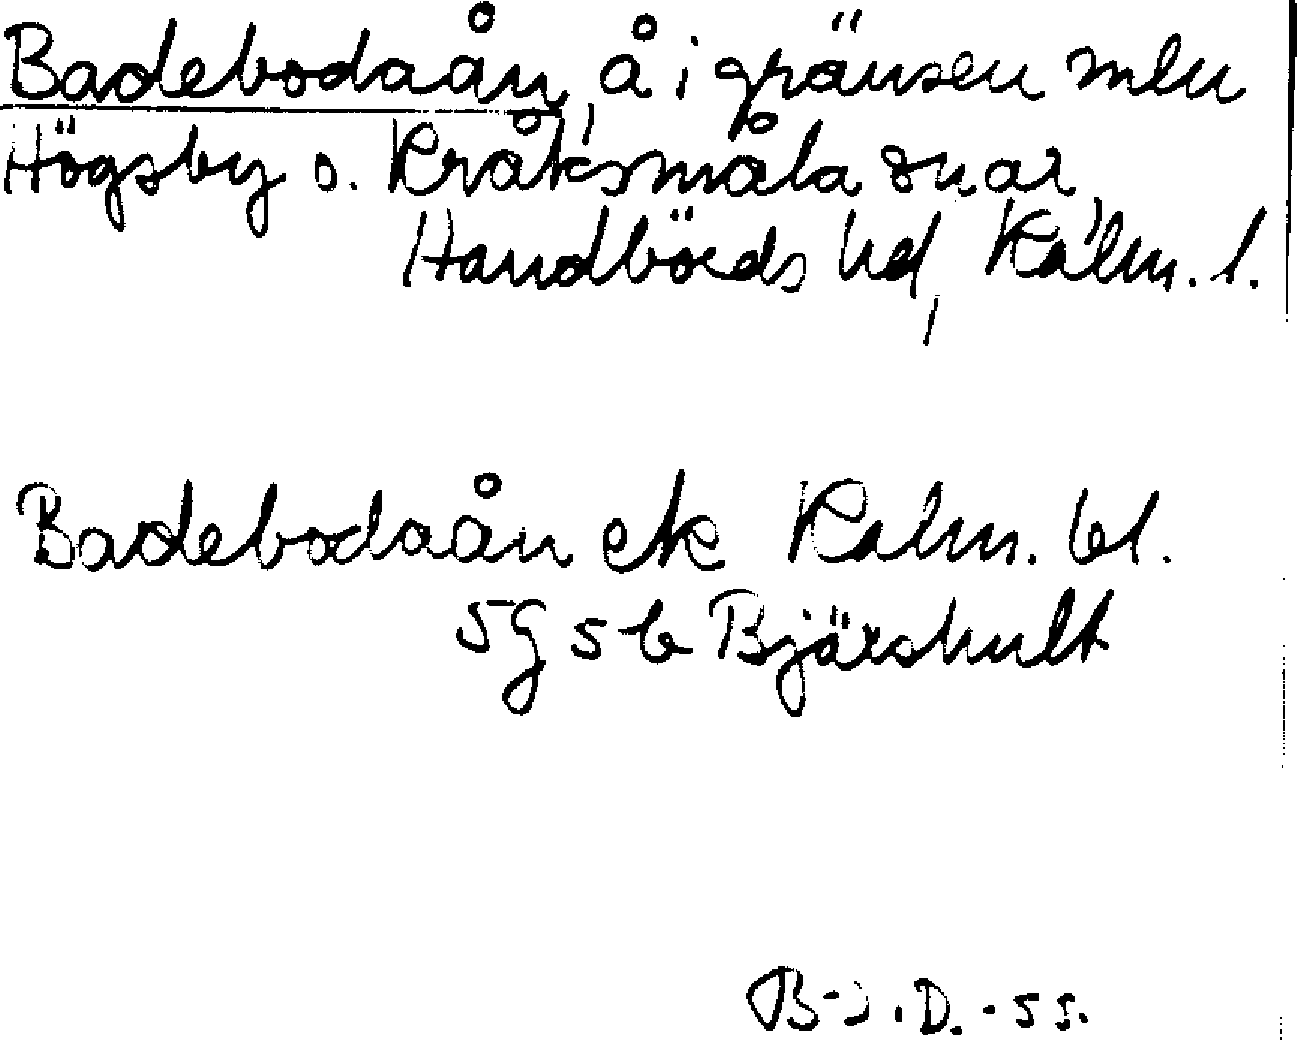 Badebodaån, å i gränsen mln
Högsby o. Kråksmåla snar,
Handbörds hd, Kalm. l.
Badebodaån ek Kalm. bl.
5G 5b Bjärshult
B-J.D.-55.